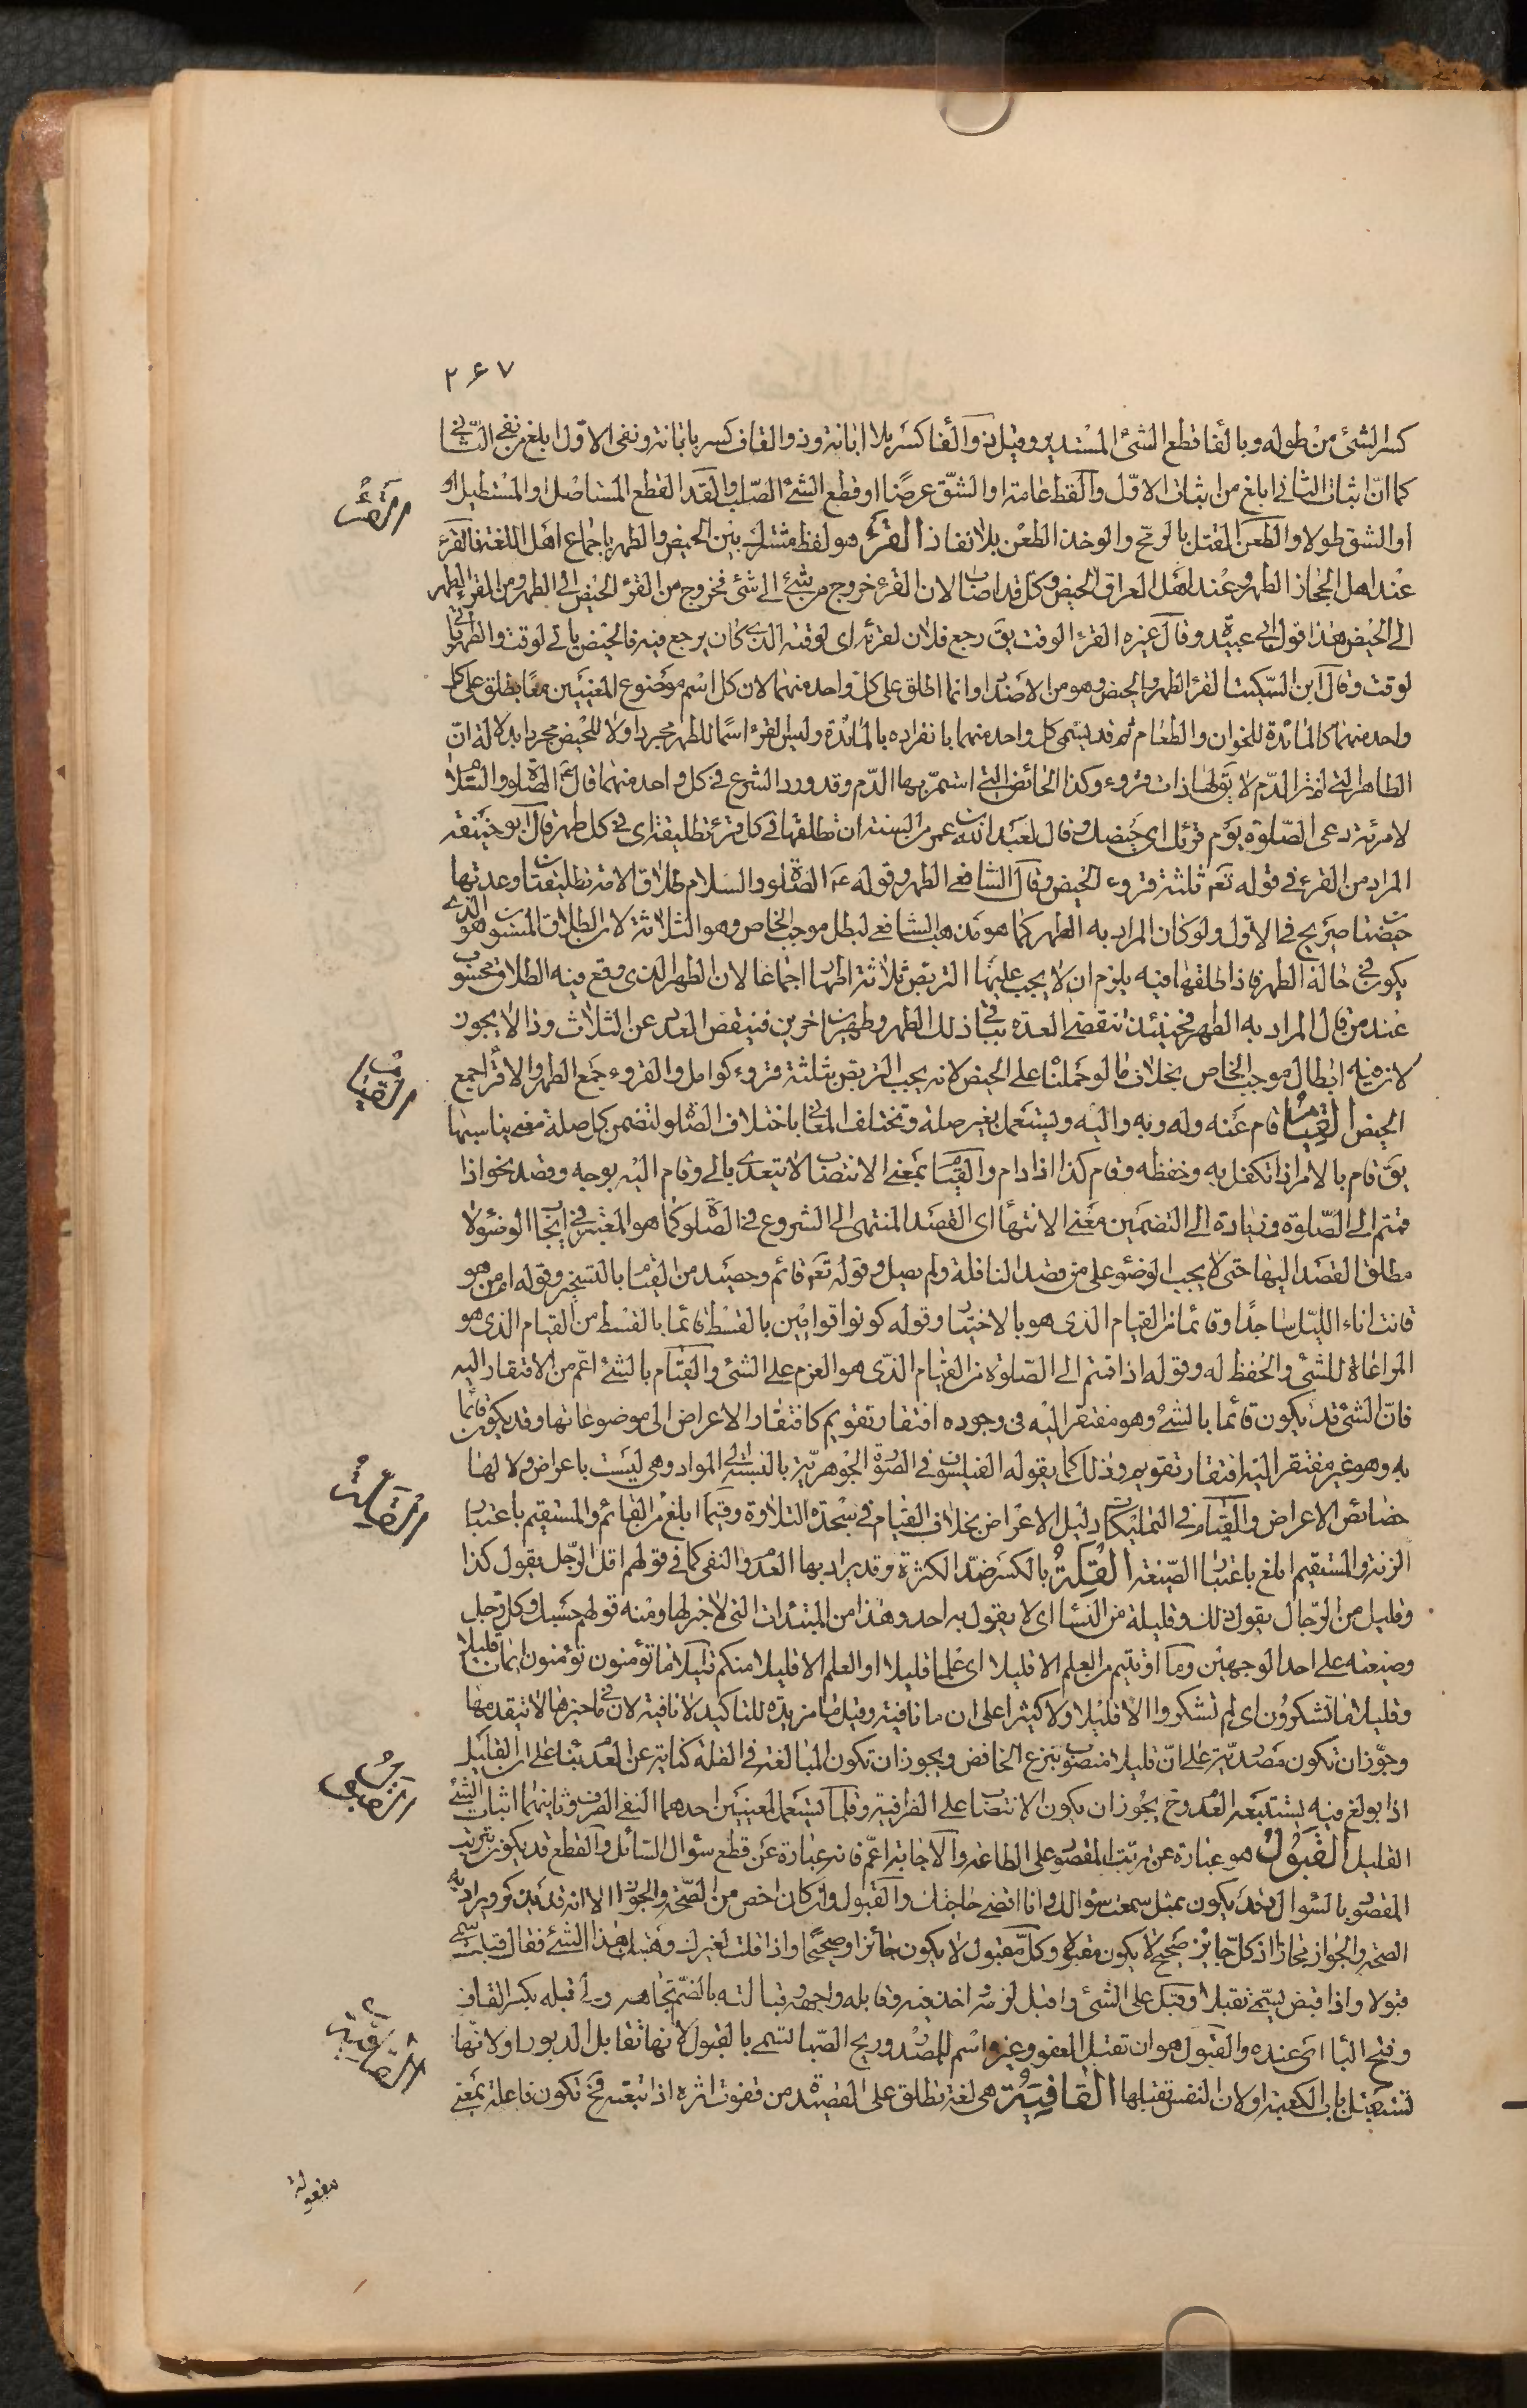 ٢۶٧
كسر الشئ من طوله وبالفا قطع الشئ المستدير وقيل ذو الفا كسر بلا ابانة وذو القاف كسر بابانة ونفى الاوّل ابلغ من نفى الثانى
كما انّ اثبات الثانى ابلغ من اثبات الاوّل والقط عامة او الشقّ عرضًا او قطع الشئ الصّلب والقدّ القطع المستاصل او المستطيل او
القرء
او الشق طولا والطعن القتل بالرمح والوخذ الطعن بلا نفاذ القرء هو لفظ مشترك بين الحيض والطهر باجماع اهل اللغة فالقرء
عند اهل الحجاز الطهر وعند اهل العراق الحيض وكل قد اصاب لان القرء خروج من شئ الى شئ فخروج من القرء الحيض الى الطهر ومن القرء الطهر
الى الحيض هذا قول ابى عبيدة وقال غيره القرء الوقت يق رجع فلان لقرئه اى لوقته الذى كان يرجع فيه فالحيض ياتى لوقت والطهر ياتى
لوقت وقال ابن السّكيت القرء الطهر والحيض وهو من الاضداد وانما اطلق على كل واحد منهما لان كل اسم موضوع لمعنيين معًا يطلق على كل
واحد منهما كالمائدة للخوان والطعام ثم قد يسمى كل واحد منهما بانفراده بالمائدة وليس القرء اسمًا للطهر مجردا ولا للحيض مجردا بدلالة انّ
الطاهر التى لم تر الدّم لا يق لها ذات قروء وكذا الحائض التى استمرّ بها الدّم وقد ورد الشرع فى كل واحد منهما قال عم الصلوة والسلام
لامرئة دعى الصّلوة يوم قرئك اى حيضك وقال لعبد الله بن عمر من السنة ان تطلقها فى كل قرء تطليقة اى فى كل طهر قال ابو حنيفة
المراد من القرء فى قوله تعم ثلثة قروء الحيض وقال الشافعى الطهر وقوله عم الصلوة والسلام طلاق الامة تطليقتان وعدتها
حيضتان صريح فى الاول ولو كان المراد به الطهر كما هو مذهب الشافعى لبطل موجب الخاص وهو الثلاثة لان الطلاق المسنون هو الذى
يكون فى حالة الطهر فاذا طلقها فيه يلزم ان لا يجب عليها التربص ثلاثة اطهار اجماعا لان الطهر الذى وقع فيه الطلاق محسوب
عند من قال المراد به الطهر فحينئذ تنقضى العدة بباقى ذلك الطهر وطهرين اخرين فينقض العدد عن الثلاث وذا لا يجوز
القيام
لانه فيه ابطال موجب الخاص بخلاف ما لو حملنا على الحيض لانه يجب التربص بثلثة قروء كوامل والقروء جمع الطهر والاقراء جمع
الحيض القيام قام عنه وله وبه واليه ويستعمل بغير صلة وتختلف المعانى باختلاف الصلة لتضمن كل صلة معنى يناسبها
يق قام بالامر اذا تكفل به وحفظه وقام كذا اذا دام والقيام بمعنى الانتصاب لا يتعدى بالى وقام اليه بوجه وقصد نحو اذا
قمتم الى الصّلوة وزيادة الى التضمين معنى الانتهاء اى القصد المنتهى الى الشروع فى الصلوة كما هو المعتبر فى ايجاب الوضوء لا
مطلق القصد اليها حتى لا يجب الوضوء على من قصد النافلة ولم يصل وقوله تعم قائم وحصيد من القيام بالتسخير وقوله امن هو
قانت اناء الليل ساجدًا وقائما من القيام الذى هو بالاختيار وقوله كونوا قوامين بالقسط قائما بالقسط من القيام الذى هو
المراعاة للشئ والحفظ له وقوله اذا قمتم الى الصّلوة من القيام الذى هو العزم على الشئ والقيام بالشئ اعم من الافتقار اليه
فانّ الشئ قد يكون قائما بالشئ وهو مفتقر اليه فى وجوده افتقار تقويم كافتقار الاعراض الى موضوعاتها وقد يكون قائما
به وهو غير مفتقر اليه افتقار تقويم وذلك كما يقوله الفيلسوف فى الصورة الجوهريّة بالنسبة الى المواد وهى ليست باعراض ولا لها
القلة
خصائص الاعراض والقيام فى التمليكات دليل الاعراض بخلاف القيام فى سجدة التلاوة وقيما ابلغ من القائم والمستقيم باعتبار
الزنة والمستقيم ابلغ باعتبار الصّيغة القِلَّةُ بالكسر ضد الكثرة وقد يراد بها العدم والنفى كما فى قولهم اقل الرّجل يقول كذا
وقليل من الرّجال يقول ذلك وقليلة من النساء اى لا يقول به احد وهذا من المبتدات التى لا خبر لها ومنه قولهم حسبك وكل رجل
وصنيعته على احد الوجهين وما اوتيتم من العلم الا قليلا اى علما قليلا او العلم الا قليلا منكم قليلا ما تؤمنون تؤمنون ايمانا قليلا
وقليلا ما تشكرون اى لم تشكروا الا قليلا ولا كثيرا على ان ما نافية وقيل ما مزيدة للتاكيد لا نافية لان ما فى حيزها لا يتقدمها
القبول
وجوّز ان تكون مصدريّة على انّ قليلا منصوب بنزع الخافض ويجوز ان تكون المبالغة فى القلة كناية عن العدم بناء على ان القليل
اذا بولغ فيه يستتبعه العدم وح يجوز ان يكون الانتصاب على الظرفية وقلما يستعمل لمعنيين احدهما النفى الصرف وثانيهما اثبات الشئ
القليل القَبُولُ هو عبارة عن ترتب المقصود على الطاعة والاجابة اعم فانه عبارة عن قطع سؤال السائل والقطع قد يكون بترتب
المقصود بالسؤال وقد يكون بمثل سمعت سؤالك وانا اقضى حاجتك والقبول وان كان اخص من الصّحة والجواز الا انه قد يذكر ويراد به
الصحة والجواز مجازا اذ كلّ جائز صحيح لا يكون مقبولا وكلّ مقبول لا يكون جائزا وصحيحا واذا قلت لغيرك وهبتك هذا الشئ فقال قبلت يسمى
القافية
قبولا واذا قبض يسمى تقبلا وقبل على الشئ واقبل لزمه واخذ فيه وقابله واجهه وقبالته بالضم تجاهه ولى قبله بكسر القاف
وفتح الباء اى عنده والقبول هو ان تقبل العفو وغيره اسم للمصدر وريح الصبا تسمى بالقبول لانها تقابل الدبور او لانها
تستقبل باب الكعبة او لان النفس تقبلها القافِيَةُ هى لغة تطلق على القصيدة من قفوت اثره اذا اتبعته فح تكون فاعلة بمعنى
مفعولة